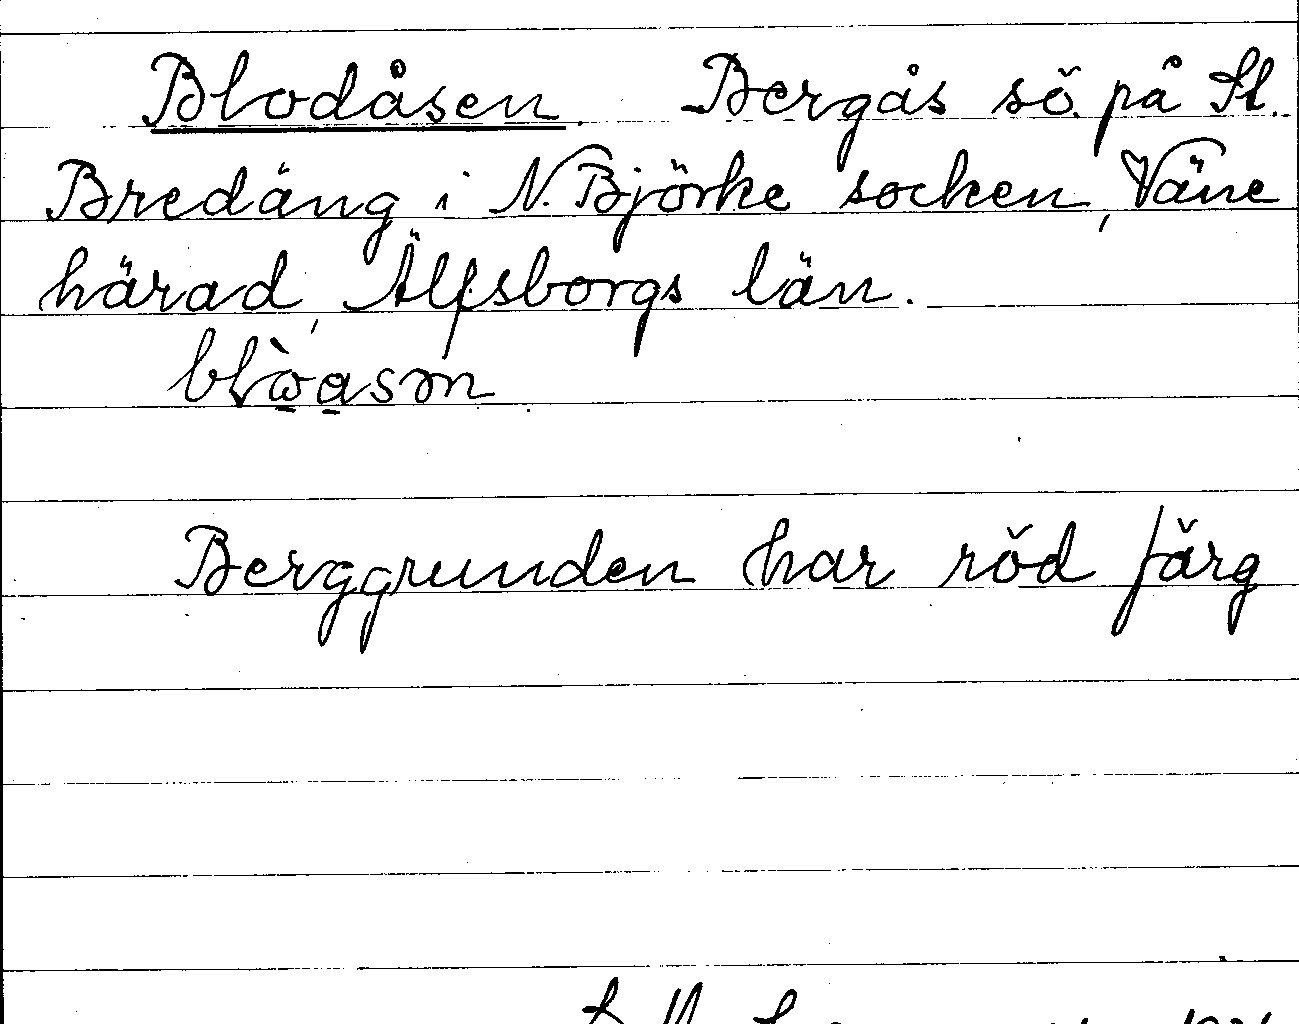 Blodåsen. Bergås sö. på St.
Bredäng i N. Björke socken, Väne
härad, Älfsborgs län.
Berggrunden har röd färg